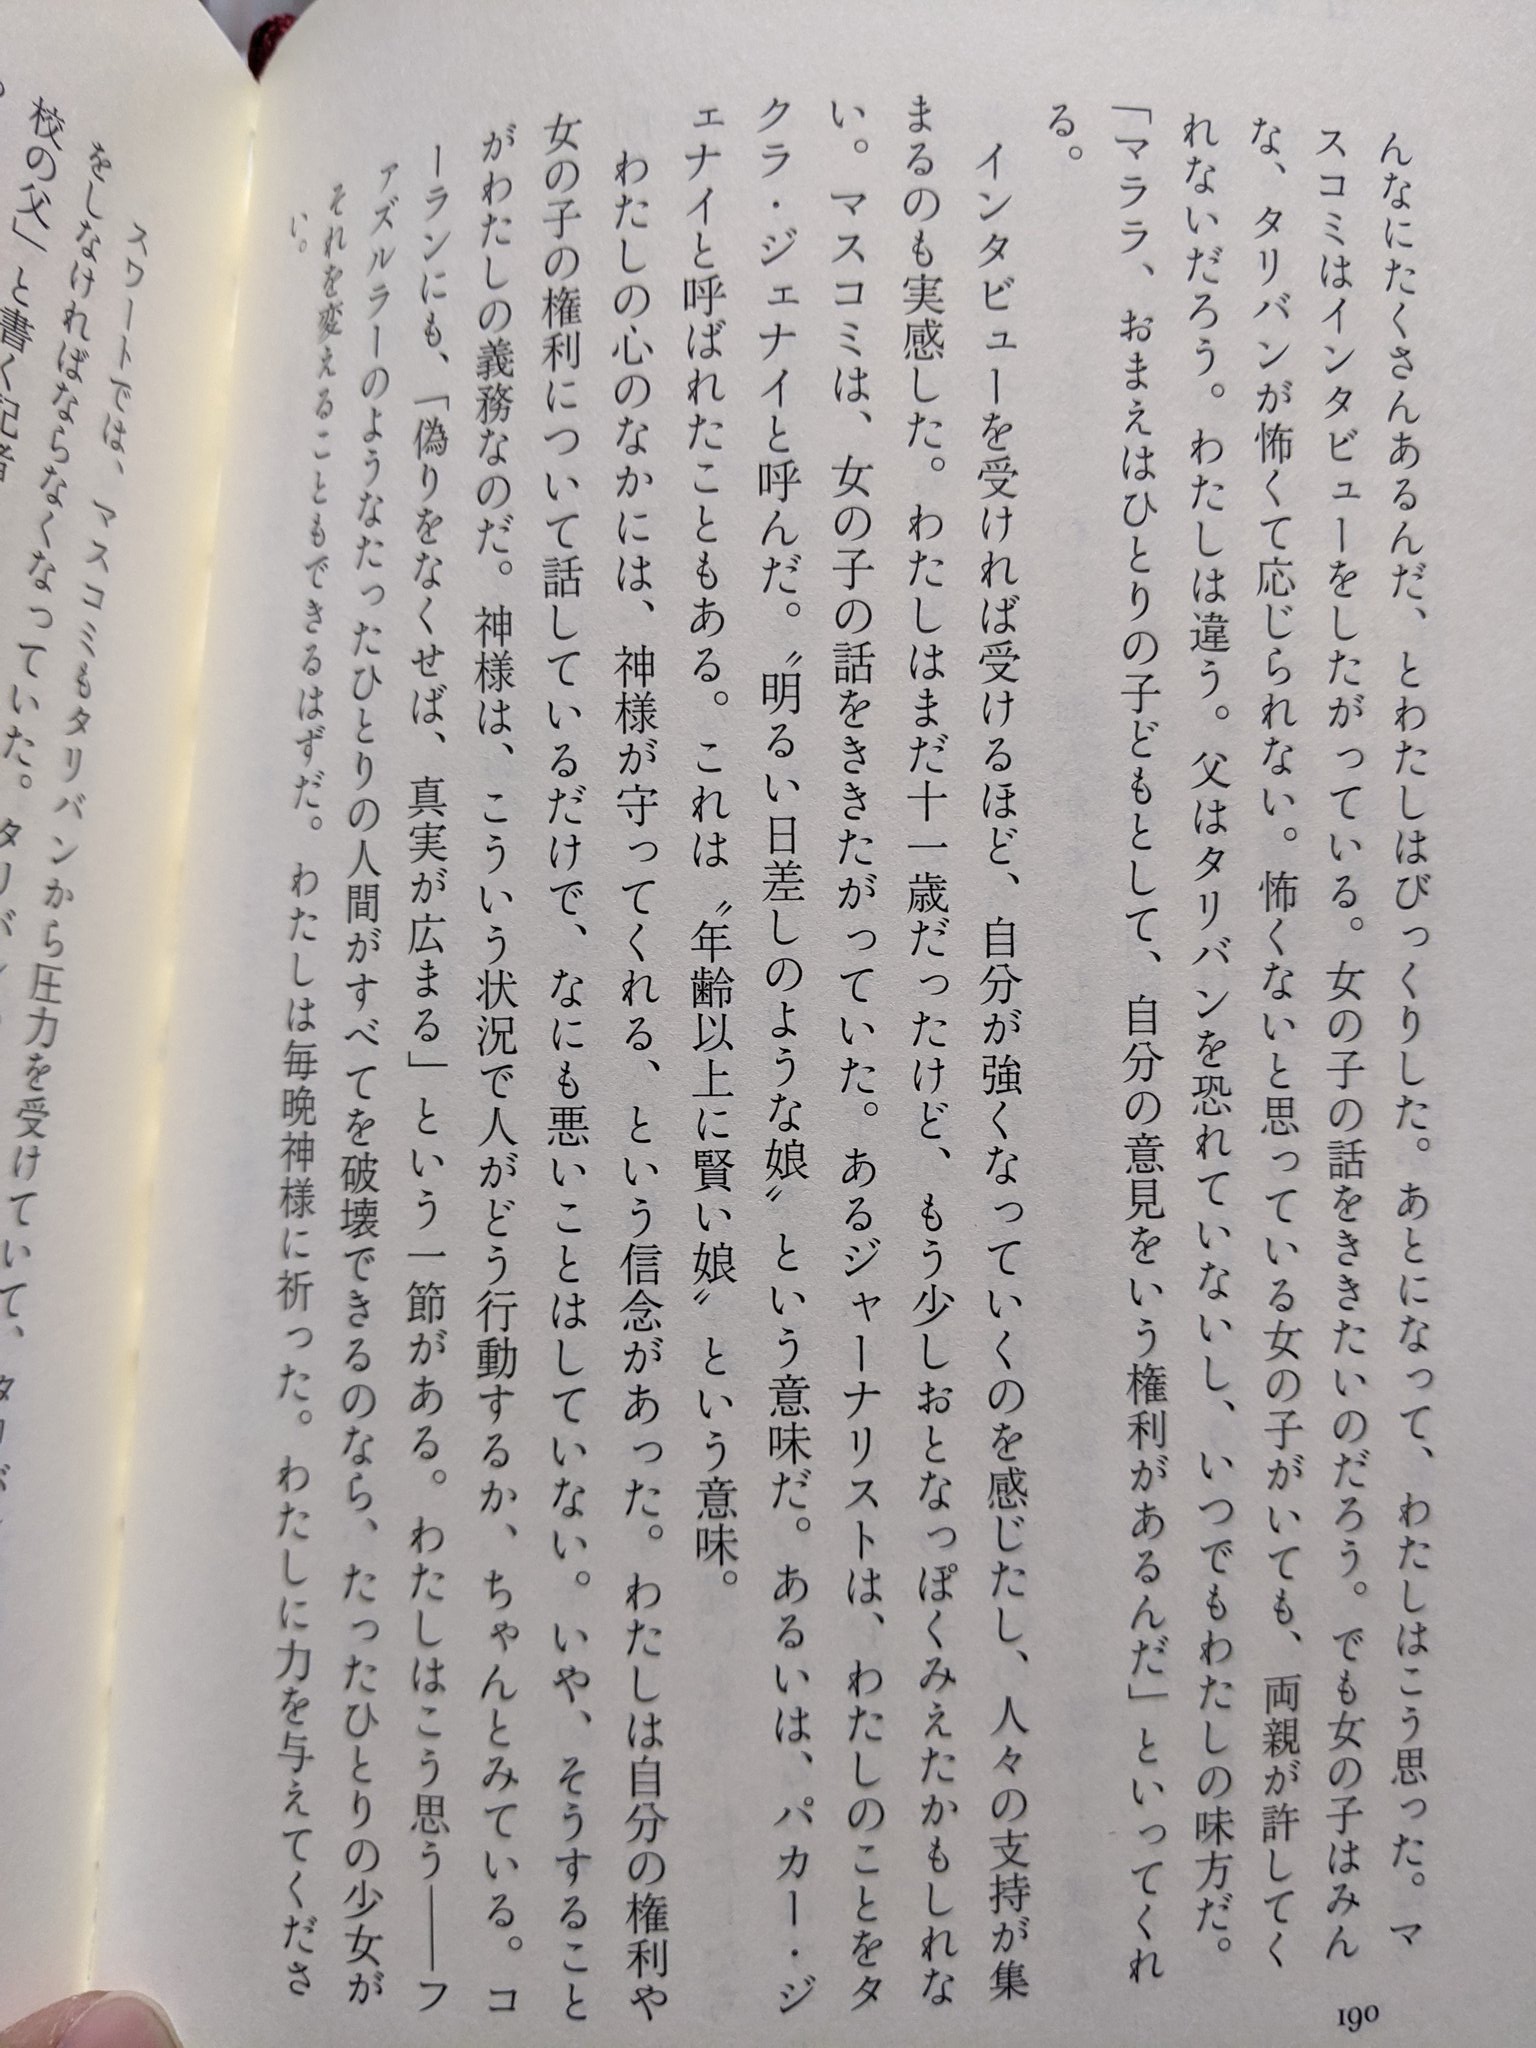 190
んなにたくさんあるんだ、とわたしはびっくりした。あとになって、わたしはこう思った。マ
スコミはインタビューをしたがっている。女の子の話をききたいのだろう。でも女の子はみん
な、タリバンが怖くて応じられない。怖くないと思っている女の子がいても、両親が許してく
れないだろう。わたしは違う。父はタリバンを恐れていないし、いつでもわたしの味方だ。
「マララ、おまえはひとりの子どもとして、自分の意見をいう権利があるんだ」といってくれ
る。
インタビューを受ければ受けるほど、自分が強くなっていくのを感じたし、人々の支持が集
まるのも実感した。わたしはまだ十一歳だったけど、もう少しおとなっぽくみえたかもしれな
い。マスコミは、女の子の話をききたがっていた。あるジャーナリストは、わたしのことをタ
クラ・ジェナイと呼んだ。〝明るい日差しのような娘〟という意味だ。あるいは、パカー・ジ
ェナイと呼ばれたこともある。これは〝年齢以上に賢い娘〟という意味。
わたしの心のなかには、神様が守ってくれる、という信念があった。わたしは自分の権利や
女の子の権利について話しているだけで、なにも悪いことはしていない。いや、そうすること
がわたしの義務なのだ。神様は、こういう状況で人がどう行動するか、ちゃんとみている。コ
ーランにも、「偽りをなくせば、真実が広まる」という一節がある。わたしはこう思う――フ
ァズルラーのようなたったひとりの人間がすべてを破壊できるのなら、たったひとりの少女が
それを変えることもできるはずだ。わたしは毎晩神様に祈った。わたしに力を与えてくださ
い。
スワートでは、マスコミもタリバンから圧力を受けていて、
をしなければならなくなっていた。タリバン
校の父〟と書く記者